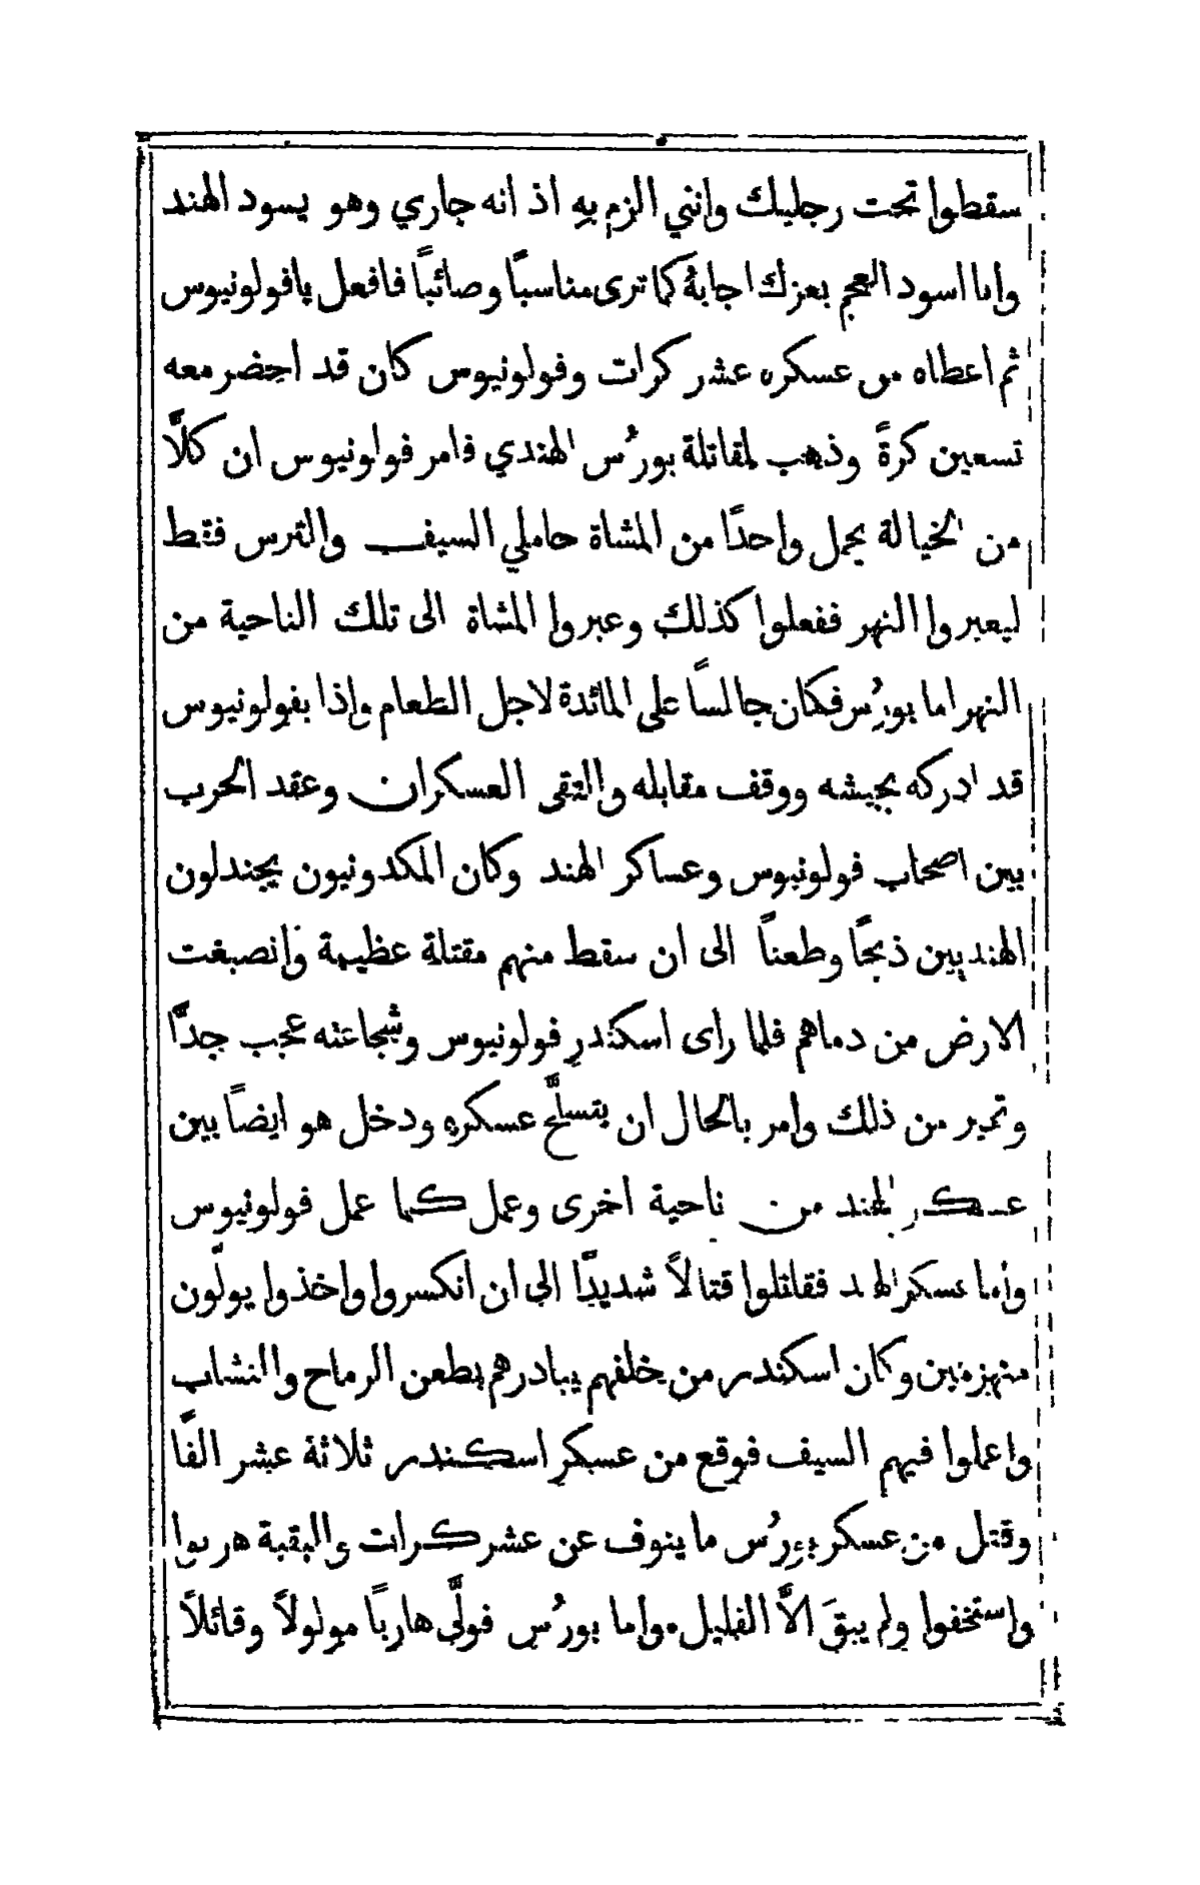 سقطوا تحت رجليك وانني الزم به اذ انه جاري وهو يسود الهند
وانا اسود العجم بعزك اجابهُ كما ترى مناسبًا وصائبًا فافعل يا فولونيوس
ثم اعطاه من عسكره عشر كرات وفولونيوس كان قد احضر معه
تسعين كرةً وذهب لمقاتلة بورُس الهندي فامر فولونيوس ان كلًّا
من الخيالة يحمل واحدًا من المشاة حاملي السيف والترس فقط
ليعبروا النهر ففعلوا كذلك وعبروا المشاة الى تلك الناحية من
النهر اما بورُس فكان جالسًا على المائدة لاجل الطعام واذا بفولونيوس
قد ادركه بجيشه ووقف مقابله والتقى العسكران وعقد الحرب
بين اصحاب فولونيوس وعساكر الهند وكان المكدونيون يجندلون
الهنديين ذبحًا وطعنًا الى ان سقط منهم مقتلة عظيمة وانصبغت
الارض من دماهم فلما راى اسكندر فولونيوس وشجاعته عجب جدًّا
وتحير من ذلك وامر بالحال ان يتسلَّح عسكره ودخل هو ايضًا بين
عسكر الهند من ناحية اخرى وعمل كما عمل فولونيوس
وأما عسكر الهند فقاتلوا قتالاً شديدًا الى ان انكسروا واخذوا يولُّون
منهزمين وكان اسكندر من خلفهم يبادرهم بطعن الرماح والنشاب
واعملوا فيهم السيف فوقع من عسكر اسكندر ثلاثة عشر الفًا
وقتل من عسكر بورُس ما ينوف عن عشر كرات والبقية هربوا
واستخفوا ولم يبقَ الاَّ القليل. واما بورُس فولَّى هاربًا مولولاً وقائلاً